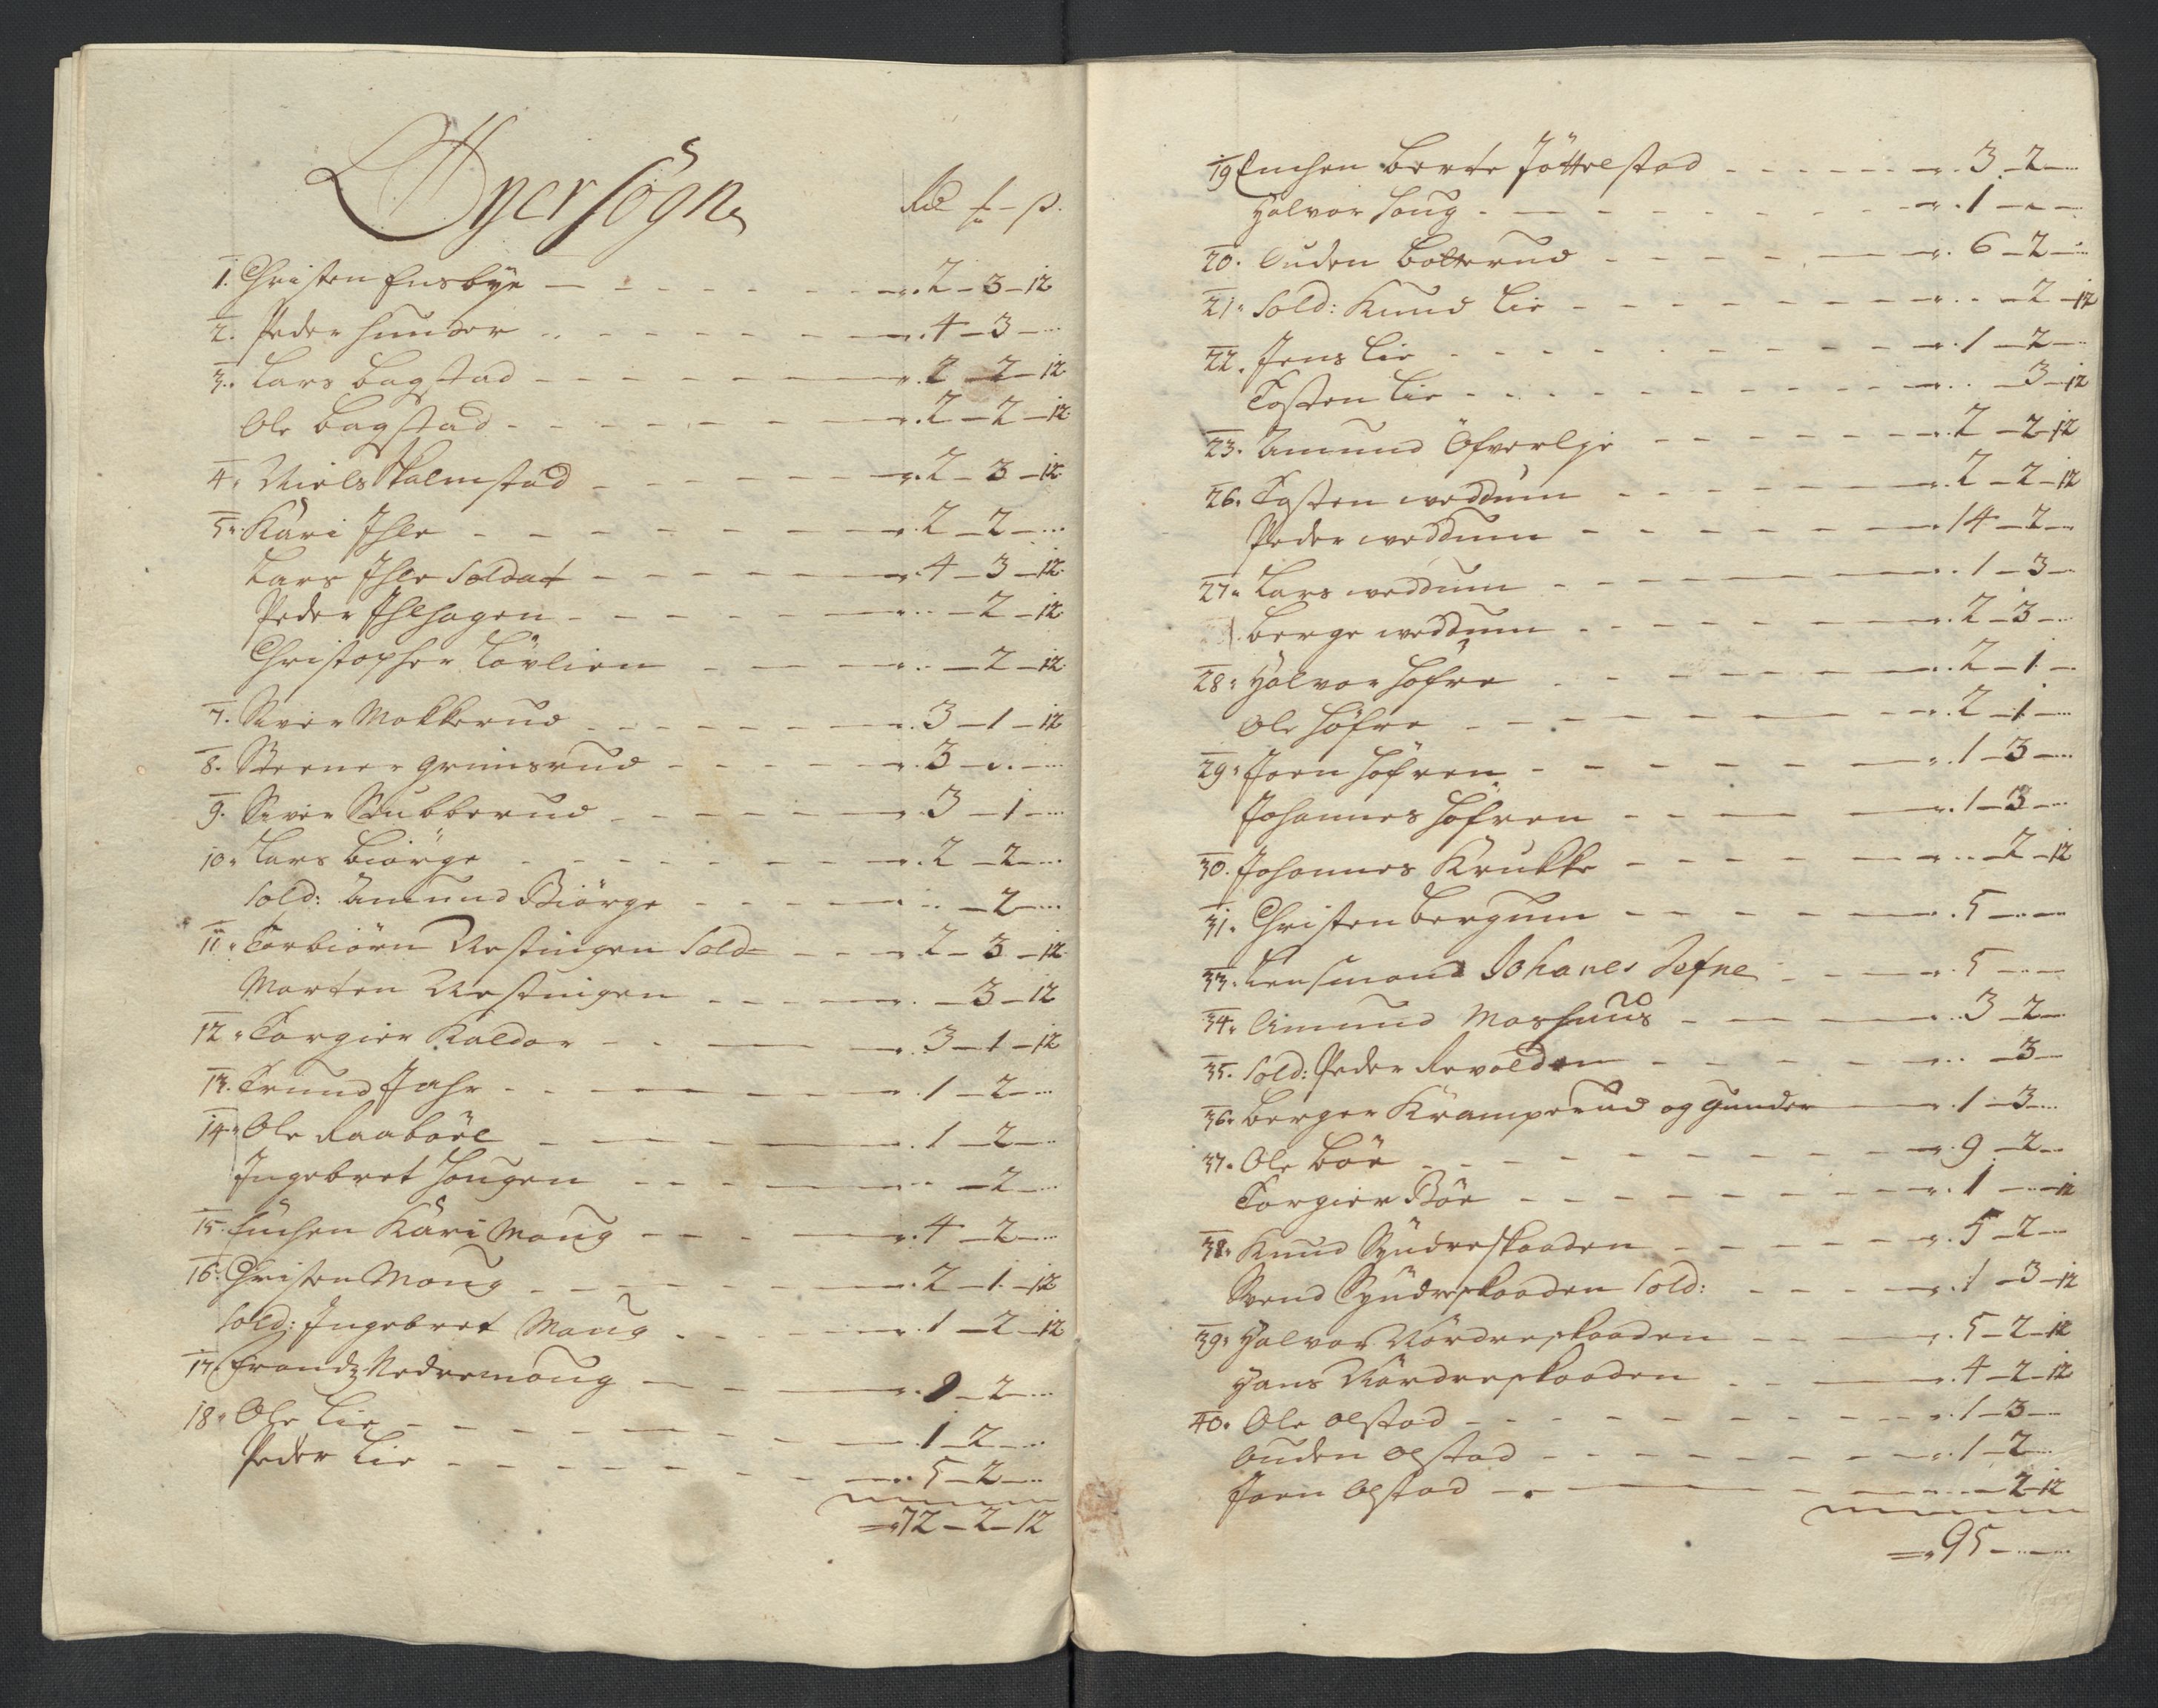 Øyer Sogn
Rdr ƒ - ß.
1. Christen Ensbye - 2 - 3 - 12
2. Peder Hunder - 4 - 3 -
3. Lars Bagstad - 2 - 2 - 12
Ole Bagstad - 2 - 2 - 12
4. Niels Skalmstad - 2 - 3 - 12
5. Kari Ihle - 2 - 2 -
Lars Ihle Soldat - 4 - 3 - 12
Peder Ihlhagen - 2 - 12
Christopher Løvlien - 2 - 12
7. Siver Mokkerud - 3 - 1 - 12
8. Steener Grimsrud - 3 -
9. Siver Stubberud - 3 - 1 -
10. Lars Biørge - 2 - 2 -
Sold: Amund Biørge - 2 -
11. Torbiørn Nestingen Sold - 2 - 3 - 12
Morten Nestingen - 3 - 12
12. Torgier Kaldor - 3 - 1 - 12
13. Trund Jahr - 1 - 2 -
14. Ole Raabøel - 1 - 2 -
Ingebret Hougen - 2 -
15. Enchen Kari Moug - 4 - 2 -
16. Christen Moug - 2 - 1 - 12
Sold: Ingebret Moug - 1 - 2 - 12
17. Frandz Nedremoug - 2 -
18. Ole Lie - 1 - 2 -
Peder Lie - 5 - 2 -
72 - 2 - 12
19 Enchen Berte Jøttelstad - 3 - 2 -
Halvor Houg - 1 - -
20. Ouden Botterud - 6 - 2 -
21. Sold: Knud Lie - 2 - 12
22. Jens Lie - 1 - 2 -
Tosten Lie - 3 - 12
23. Amund Øfverlie - 2 - 2 - 12
26. Tosten Weddum - 2 - 2 - 12
Peder Weddum - 14 - 2 -
27. Lars Weddum - 1 - 3 -
Berge Weddum - 2 - 3 -
28. Halvor Høfre - 2 - 1 -
Ole Høfre - 2 - 1 -
29. Joen Høfren - 1 - 3 -
Johannes Høfren - 1 - 3 -
30. Johannes Krukke - 2 - 12
31. Christen Bergum - 5 - -
33. Lensmand Johanes Tefne - 5 - -
34. Amund Moshuus - 3 - 2 -
35. Sold: Peder Revolden - 3 -
36. Berger Kramperud og Gunder - 1 - 3 -
37. Ole Bøe - 9 - 2 -
Torgier Bøe - 1 - - 12
38. Knud Syndreskaaden - 5 - 2 -
Svend Syndreskaaden Sold: - 1 - 3 - 12
39. Halvor Nordreskaaden - 5 - 2 - 12
Hans Nordreskaaden - 4 - 2 - 12
40. Ole Olstad - 1 - 3 -
Ouden Olstad - 1 - 2
Joen Olstad - 2 - 12
95 - -